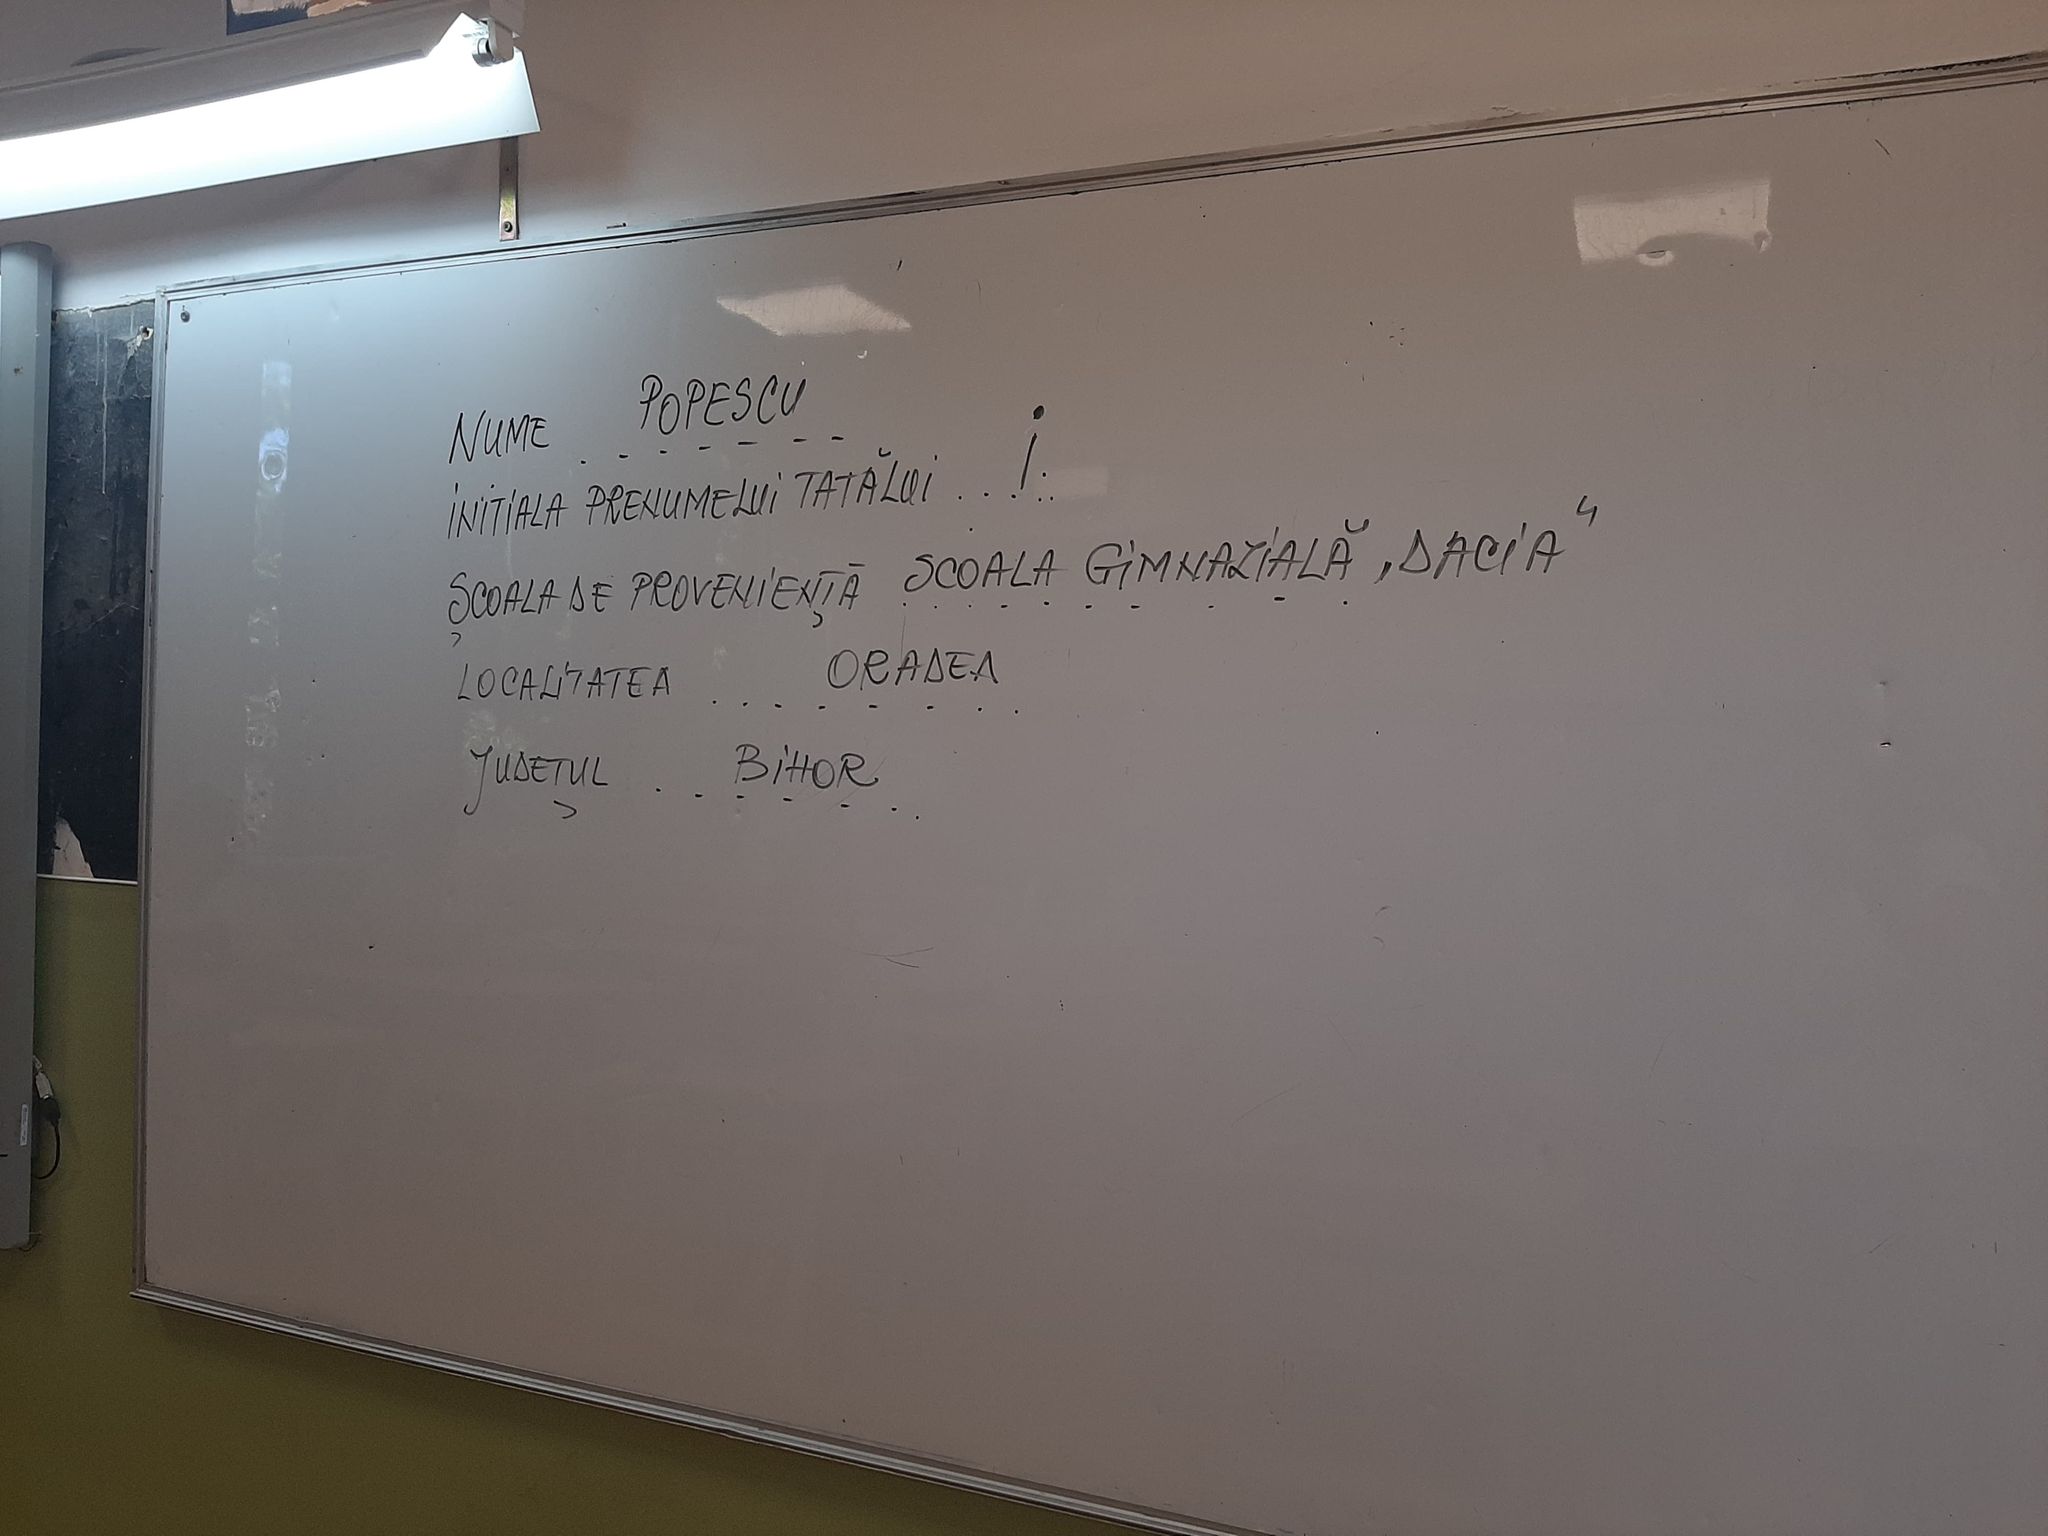 NUME . . . POPESCU . . .
INIȚIALA PRENUMELUI TATĂLUI . . . I . .
ȘCOALA DE PROVENIENȚĂ SCOALA GIMNAZIALĂ „DACIA"
LOCALITATEA . . . ORADEA . .
JUDEȚUL . . . BIHOR . . .